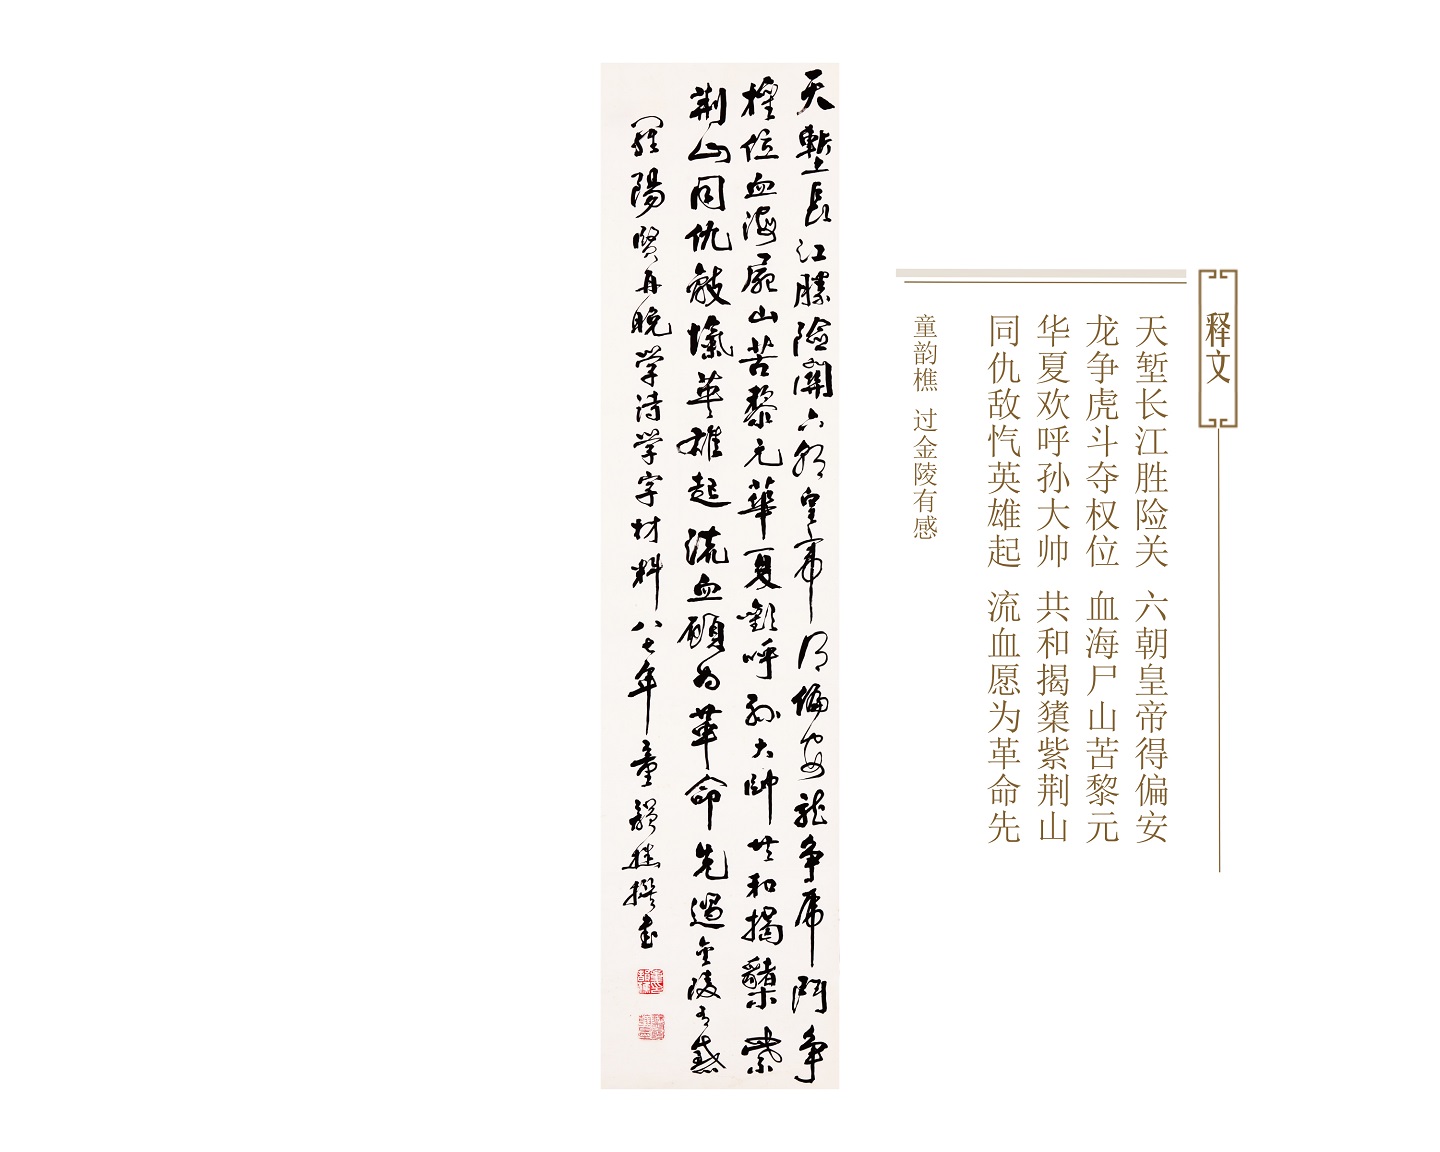 天塹長江勝險關六朝皇帝得偏安龍争虎鬥争
權位血海屍山苦黎元華夏歡呼孫大帥共和揭櫫紫
荆山同仇敵愾英雄起流血願为革命先過金陵有感
羅陽賢再晚学诗学字材料八七年童韻樵撰書
释文
天堑长江胜险关 六朝皇帝得偏安
龙争虎斗夺权位 血海尸山苦黎元
华夏欢呼孙大帅 共和揭橥紫荆山
同仇敌忾英雄起 流血愿为革命先
童韵樵 过金陵有感